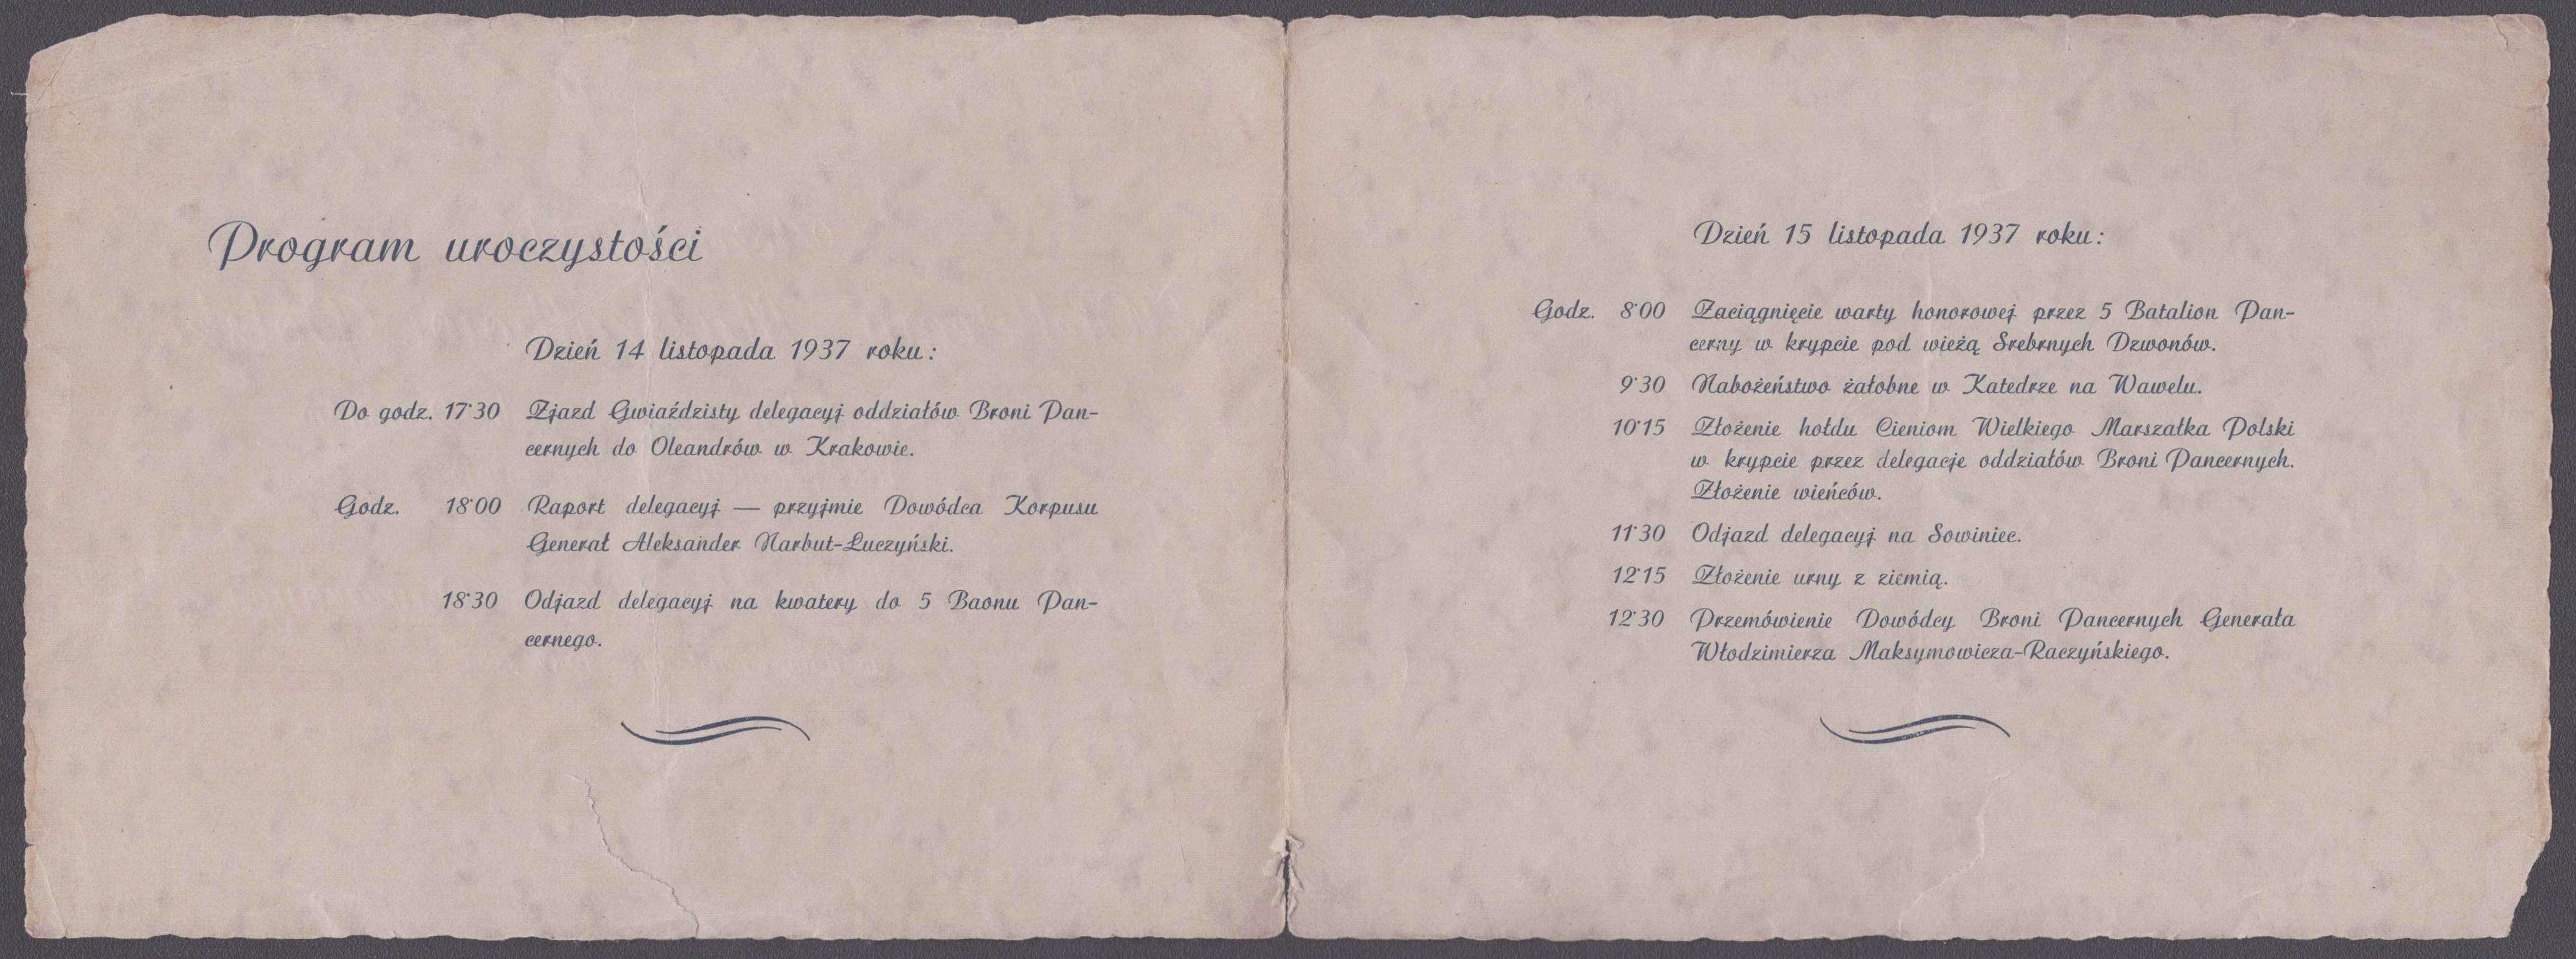 Program uroczystości
Dzień 14 listopada 1937 roku:
Do godz. 17·30 Zjazd Gwiaździsty delegacyj oddziałów Broni Pan-
cernych do Oleandrów w Krakowie.
Godz. 18·00 Raport delegacyj — przyjmie Dowódca Korpusu
Generał Aleksander Narbut-Łuczyński.
18·30 Odjazd delegacyj na kwatery do 5 Baonu Pan-
cernego.
Dzień 15 listopada 1937 roku:
Godz. 8·00 Zaciągnięcie warty honorowej przez 5 Batalion Pan-
cerny w krypcie pod wieżą Srebrnych Dzwonów.
9·30 Nabożeństwo żałobne w Katedrze na Wawelu.
10·15 Złożenie hołdu Cieniom Wielkiego Marszałka Polski
w krypcie przez delegacje oddziałów Broni Pancernych.
Złożenie wieńców.
11·30 Odjazd delegacyj na Sowiniec.
12·15 Złożenie urny z ziemią.
12·30 Przemówienie Dowódcy Broni Pancernych Generała
Włodzimierza Maksymowicza-Raczyńskiego.